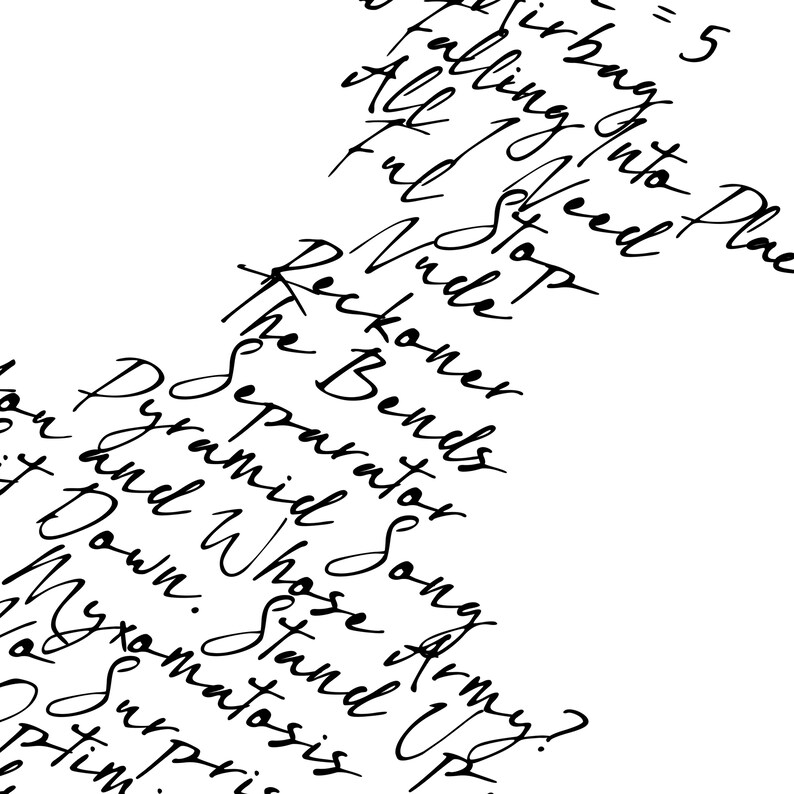 = 5
Airbag
Falling Into Plac
All I Need
Ful Stop
Nude
Reckoner
The Bends
Separator
Pyramid Song
ou and Whose Army?
it Down. Stand Up
Myxomatosis
o Surpris
Optimi